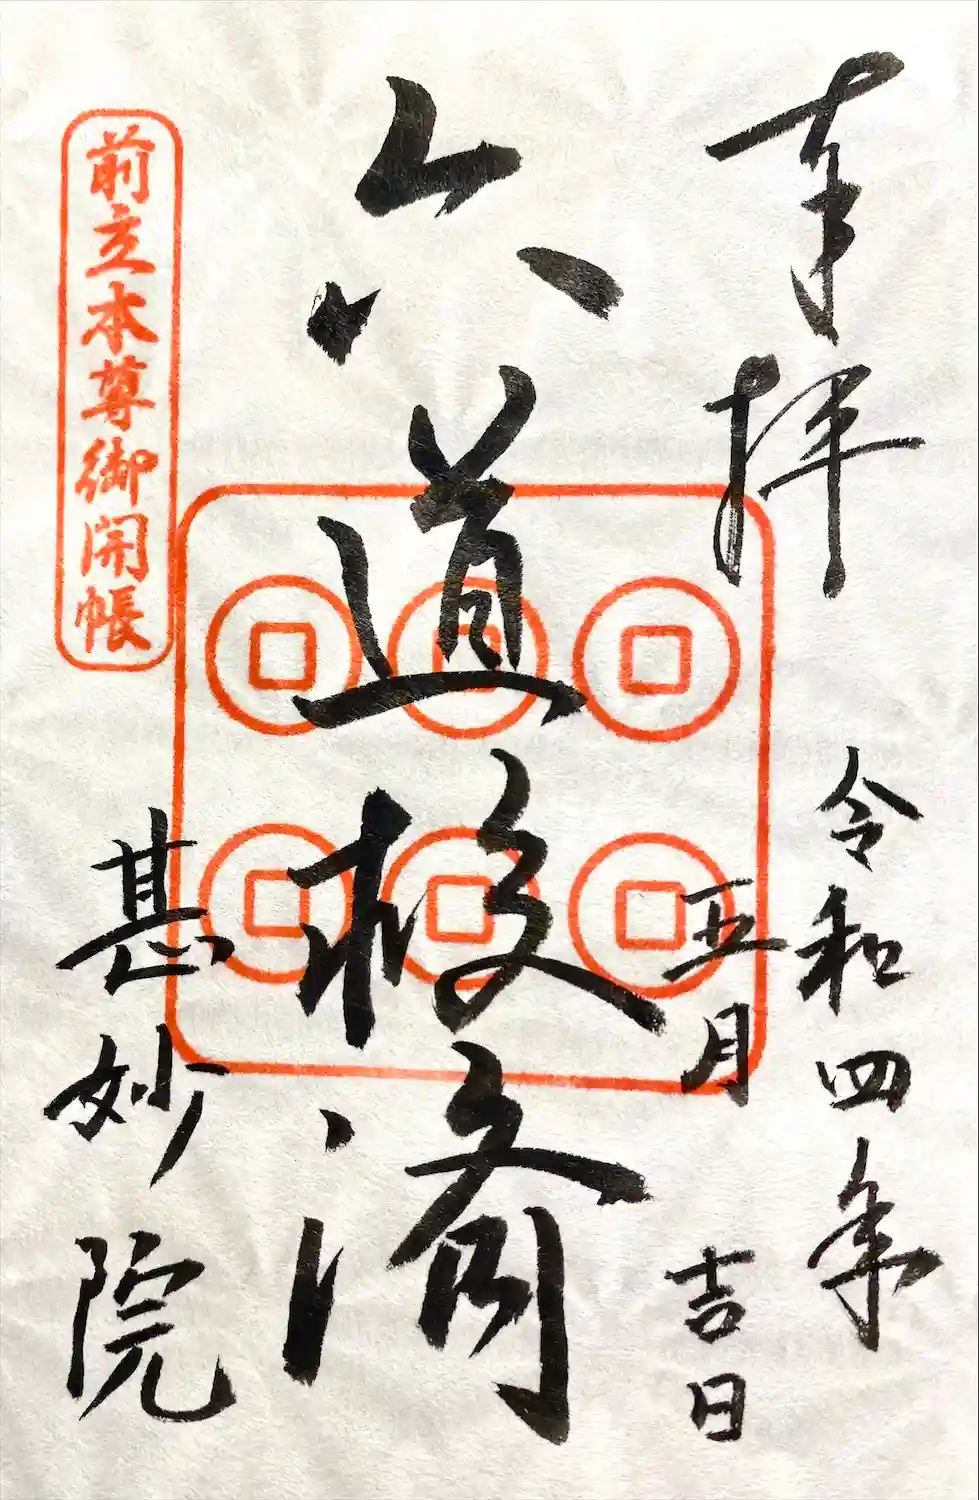 奉拝
令和四年
五月吉日
六道救済
甚妙院
前立本尊御開帳